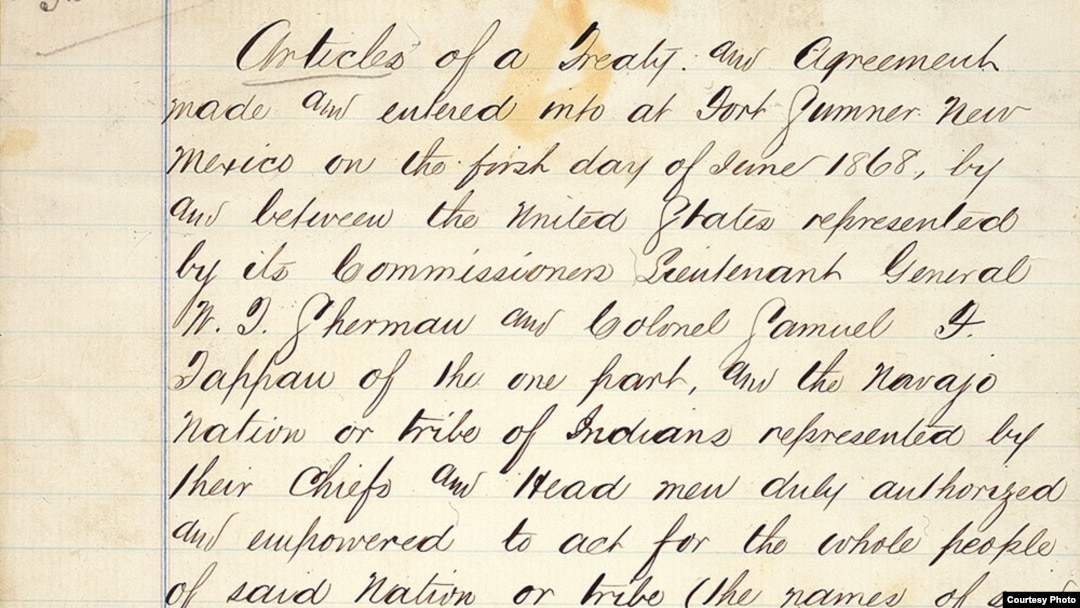 Articles of a Treaty and Agreement
made and entered into at Fort Sumner New
Mexico on the first day of June 1868, by
and between the United States represented
by its Commissioners Lieutenant General
W. T. Sherman and Colonel Samuel F.
Tappan of the one part, and the Navajo
Nation or tribe of Indians represented by
their Chiefs and Head men duly authorized
and empowered to act for the whole people
of said Nation or tribe (the names of
Courtesy Photo